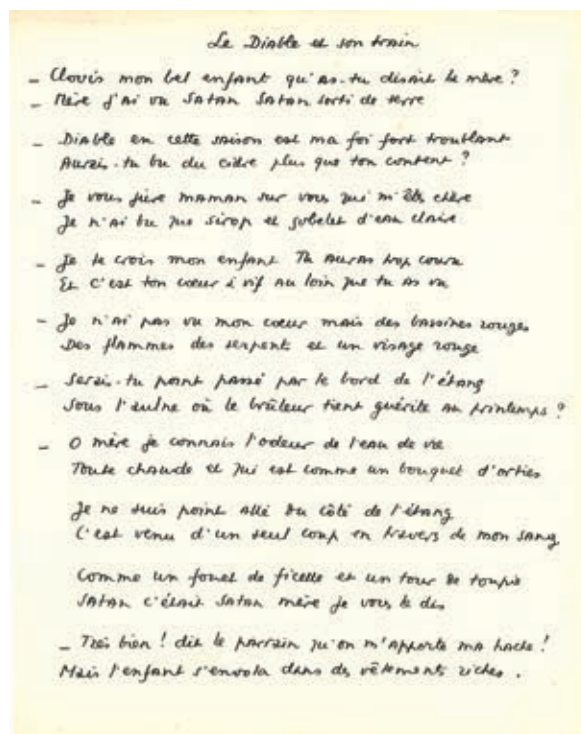 Le Diable et son train
– Clovis mon bel enfant qu'as-tu disait la mère ?
– Mère j'ai vu Satan Satan sorti de terre
– Diable en cette saison est ma foi fort troublant
Aurais-tu bu du cidre plus que ton content ?
– Je vous jure maman sur vous qui m'êtes chère
Je n'ai bu que sirop et gobelet d'eau claire
– Je te crois mon enfant Tu auras trop couru
Et c'est ton cœur à vif au loin que tu as vu
– Je n'ai pas vu mon cœur mais des bassines rouges
Des flammes des serpents et un visage rouge
– Serais-tu point passé par le bord de l'étang
Sous l'aulne où le brûleur tient guérite au printemps ?
– O mère je connais l'odeur de l'eau de vie
Toute chaude et qui est comme un bouquet d'orties
Je ne suis point allé du côté de l'étang
C'est venu d'un seul coup en travers de mon sang
Comme un fouet de ficelle et un tour de toupie
Satan c'était Satan mère je vous le dis
– Très bien ! dit le parrain qu'on m'apporte ma hache !
Mais l'enfant s'envola dans des vêtements riches.